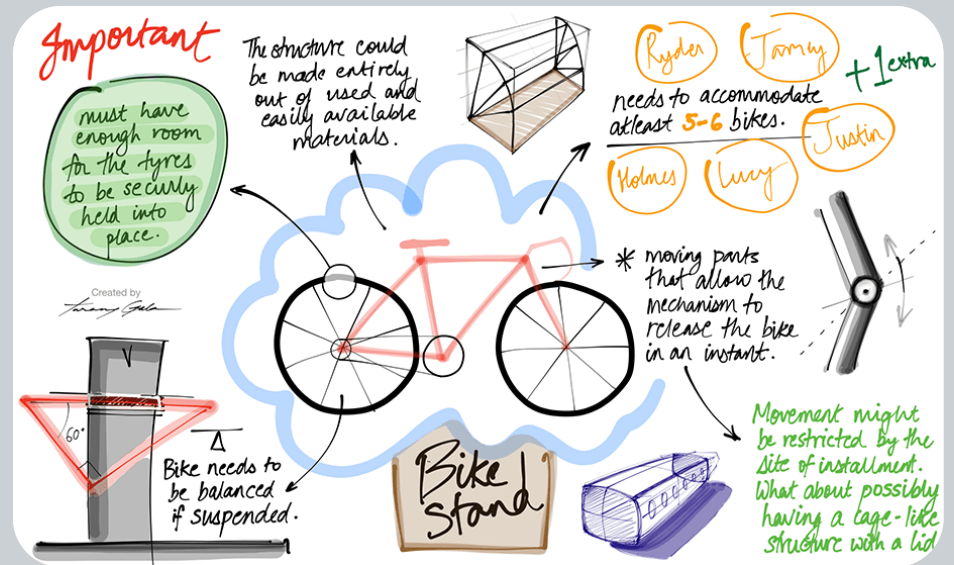 Important
must have
enough room
for the tyres
to be securly
held into
place.
The structure could
be made entirely
out of used and
easily available
materials.
Ryder
+1 extra
needs to accommodate
atleast 5-6 bikes.
Justin
Holmes
Lucy
* moving parts
that allow the
mechanism to
release the bike
in an instant.
Created by
60°
Bike needs to
be balanced
if suspended.
Bike
stand
Movement might
be restricted by the
site of installment.
What about possibly
having a cage-like
structure with a lid